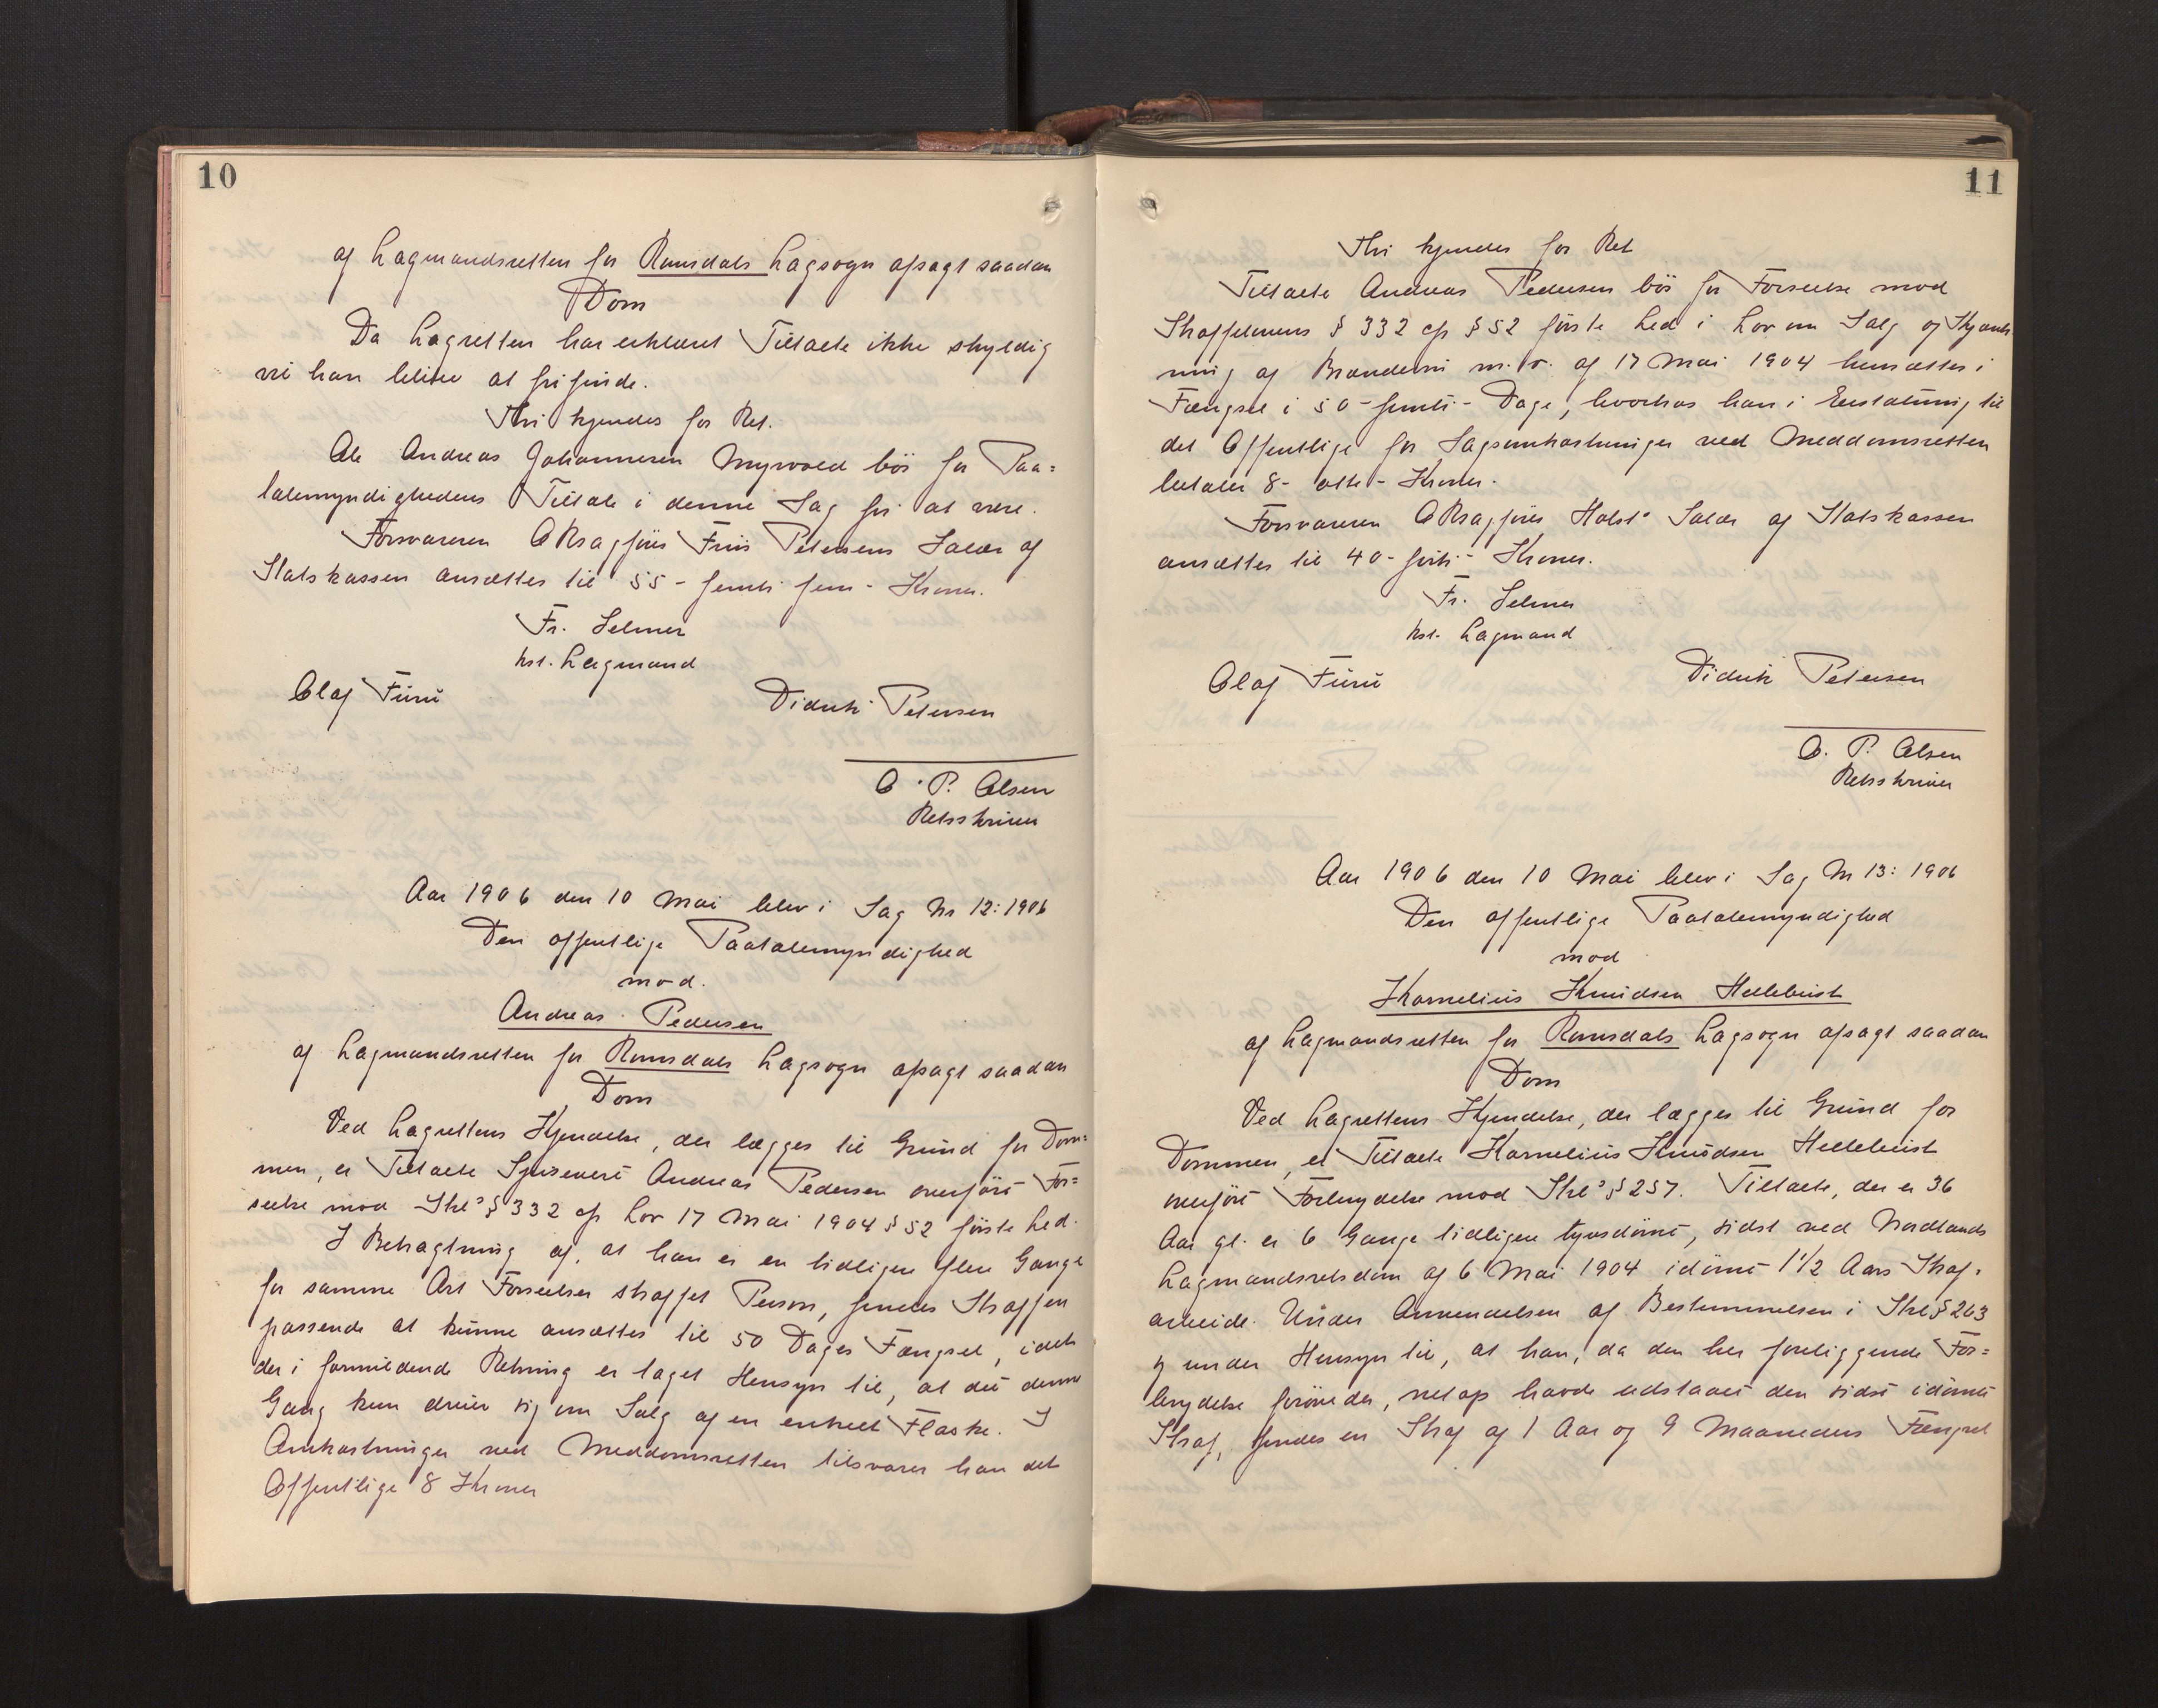 10
af Lagmandsretten for Romsdals Lagsogn afsagt saadan
Dom
Da Lagretten har erklæret Tiltalte ikke skyldig
vil han blive at frifinde.
Thi kjendes for Ret.
Ole Andreas Johannesen Myrvold bör for Paa=
talemyndighedens Tiltale i denne Sag fri at være.
Forsvareren ORsagförer Friis Petersens Salær af
Statskassen ansættes til 55 - femti fem - Kroner.
Fr. Selmer
kst. Lagmand
Olaf Furu
Didrik Petersen
O. P. Olsen
Retsskriver
Aar 1906 den 10 Mai blev i Sag Nr 12: 1906
Den offentlige Paatalemyndighed
mod.
Andreas Pedersen
af Lagmandsretten for Romsdals Lagsogn afsagt saadan
Dom
Ved Lagrettens Kjendelse, der lægges til Grund for Dom=
men, er Tiltalte Spisevert Andreas Pedersen overfört For=
seelse mod Strl's § 332 cfr Lov 17 Mai 1904 § 52 förste Led.
I Betragtning af, at han er en tidligere flere Gange
for samme Art Forseelser straffet Person, findes Straffen
passende at kunne ansættes til 50 Dages Fængsel, idet
der i formildende Retning er taget Hensyn til, at det denne
Gang kun dreier sig om Salg af en enkelt Flaske. I
Omkostninger ved Meddomsretten tilsvarer han det
Offentlige 8 Kroner
11
Thi kjendes for Ret
Tiltalte Andreas Pedersen bör for Forseelse mod
Straffelovens § 332 cfr § 52 förste Led i Lov om Salg og Skjænk
ning af Brændevin m. v. af 17 Mai 1904 hensættes i
Fængsel i 50 - femti - Dage, hvorhos han i Erstatning til
det Offentlige for Sagsomkostninger ved Meddomsretten
betaler 8 - otte - Kroner.
Forsvareren ORsagförer Holst's Salær af Statskassen
ansættes til 40 - förti - Kroner.
Fr. Selmer
kst. Lagmand
Olaf Furu
Didrik Petersen
O. P. Olsen
Retsskriver
Aar 1906 den 10 Mai blev i Sag Nr 13: 1906
Den offentlige Paatalemyndighed
mod
Kornelius Knudsen Hellebust
af Lagmandsretten for Romsdals Lagsogn afsagt saadan
Dom
Ved Lagrettens Kjendelse, der lægges til Grund for
Dommen, er Tiltalte Kornelius Knudsen Hellebust
overfört Forbrydelse mod Strl's § 257. Tiltalte, der er 36
Aar gl. er 6 Gange tidligere tyvsdömt, sidst ved Nordlands
Lagmandsretsdom af 6 Mai 1904 idömt 1 1/2 Aars Straf.
arbeide. Under Anvendelsen af Bestemmelsen i Strl § 263
og under Hensyn til, at han, da den her foreliggende For=
brydelse forövedes, netop havde udstaaet den sidst idömte
Straf, findes en Straf af 1 Aar og 9 Maaneders Fængsel